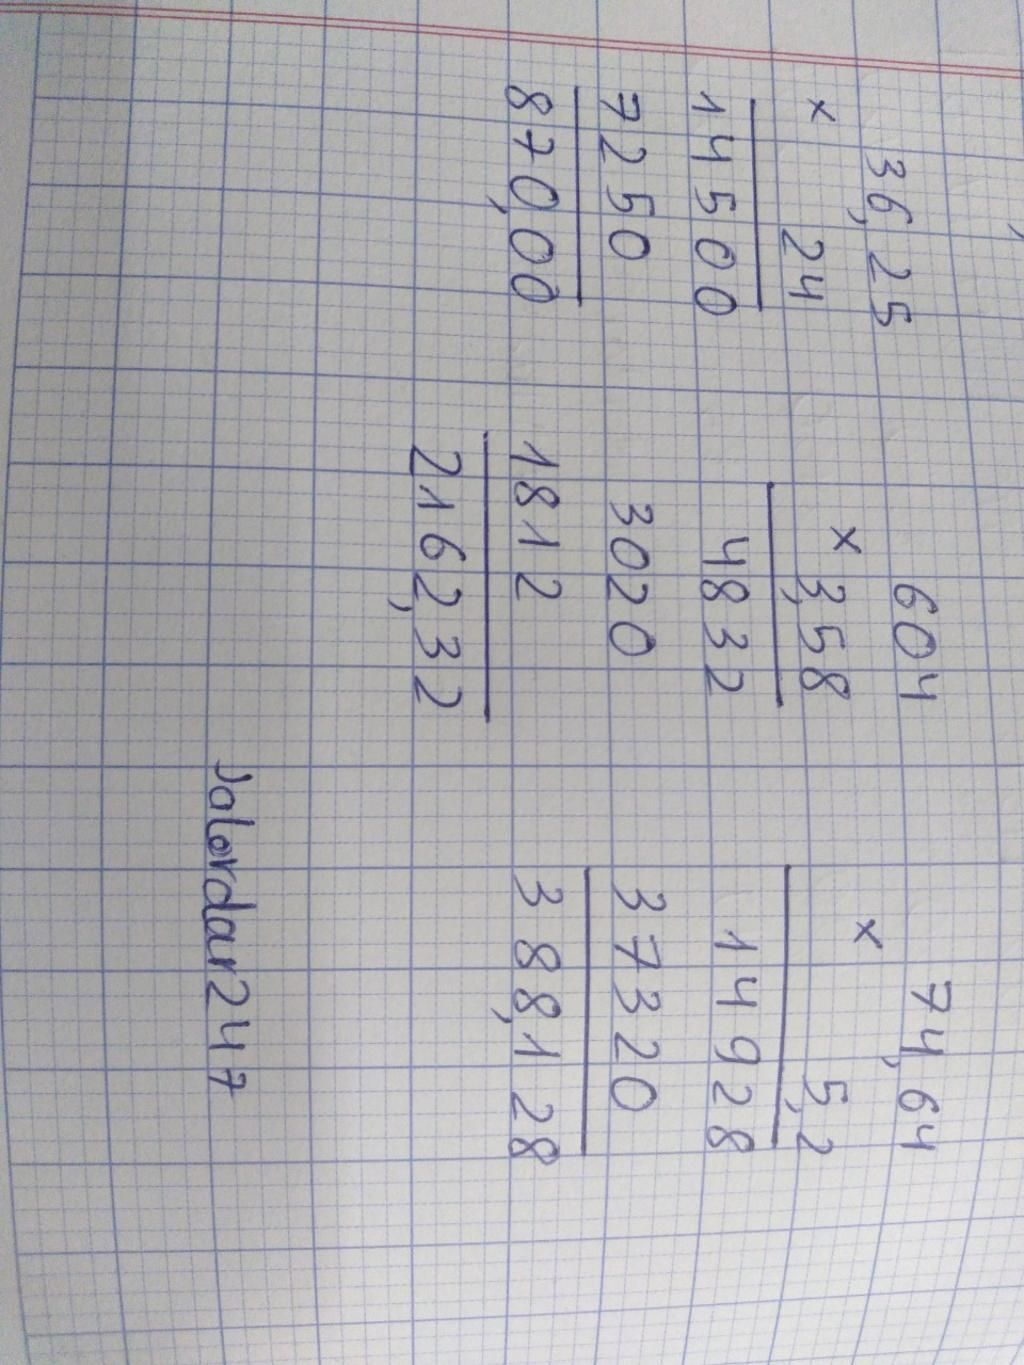 36,25
x 24
14500
7250
870,00
604
x 3,58
4832
3020
1812
2162,32
74,64
x 5,2
14928
37320
388,128
Jalordar247